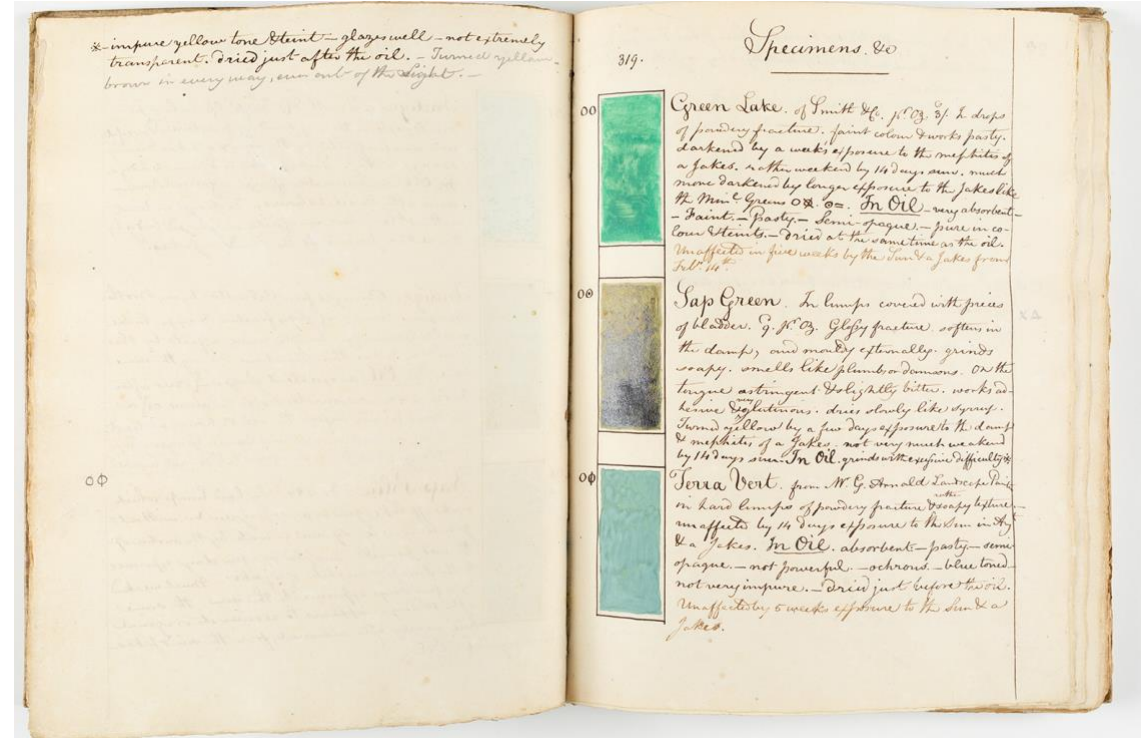 ※ - impure yellow tone & teint - glazes well - not extremely
transparent. dried just after the oil. - Turned yellow
brown in every way, even out of the Light. -
ΟΦ
319.
Specimens. &c
OO
Green Lake. of Smith & Co. pr Oz. 3/. In drops
of powdery fracture. faint colour & works pasty.
darkened by a week's exposure to the mephites of
a Jakes. rather weakend by 14 days sun. much
more darkened by longer exposure to the Jakes like
the Minl Greens In Oil - very absorbent -
- Faint. - Pasty. - Semi-opaque. - pure in co-
lour & teints. - Dried at the same time as the oil.
Unaffected in five weeks by the Sun & a Jakes from
Feby. 14th.
Sap Green. In lumps covered with pieces
of bladder. 9. pr Oz. Glossy fracture. softens in
the damp, and moulds externally. grinds
soapy. smells like plumbs or damsons. On the
tongue astringent & slightly bitter. works ad-
hesive & very glutinous. dries slowly like syrup.
Turned yellow by a few days exposure to the damp
& mephites of a Jakes. not very much weakend
by 14 days sun In Oil. grinds with excessive difficulty ※
ΟΦ
Terra Vert. from W. G. Arnald Landscape Paintr
in hard lumps of powdery fracture & rather soapy texture. -
unaffected by 14 Days exposure to the Sun in Augt
& a Jakes. In Oil. absorbent - pasty - semi
opaque. - not powerful - ochrous. - blue toned -
not very impure. - Dried just before the oil.
Unaffected by 5 weeks exposure to the Sun & a
Jakes.